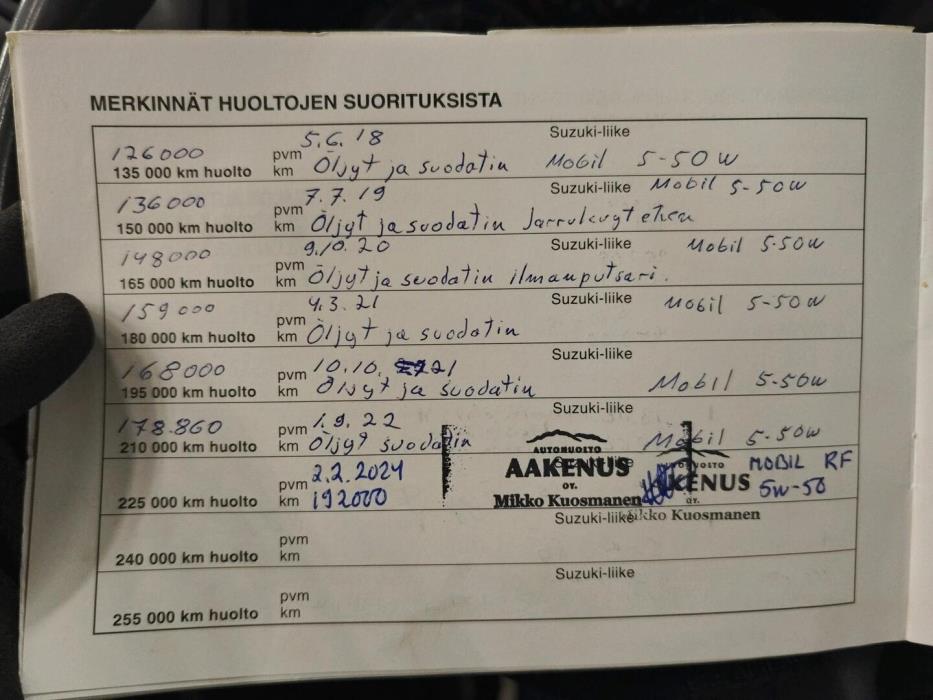 MERKINNÄT HUOLTOJEN SUORITUKSISTA
5.6.18 Suzuki-liike
126000 pvm Öljyt ja suodatin Mobil 5-50W
135 000 km huolto km
7.7.19 Suzuki-liike Mobil 5-50W
136000 pvm Öljyt ja suodatin
150 000 km huolto km
9.10.20 Suzuki-liike Mobil 5-50W
148000 pvm Öljyt ja suodatin ilmanputsari.
165 000 km huolto km
4.3.21 Suzuki-liike Mobil 5-50W
159000 pvm Öljyt ja suodatin
180 000 km huolto km
Suzuki-liike
168000 pvm 10.10. 21
195 000 km huolto km Öljyt ja suodatin Mobil 5-50W
Suzuki-liike
178.860 pvm 1.9.22
210 000 km huolto km Öljyt suodatin Mobil 5-50W
AUTOHUOLTO Suzuki-liike
pvm 2.2.2024 AAKENUS KENUS MOBIL RF
OY. OY. 5W-50
225 000 km huolto km 192000 Mikko Kuosmanen
Suzuki-liike Mikko Kuosmanen
pvm
240 000 km huolto km
Suzuki-liike
pvm
255 000 km huolto km